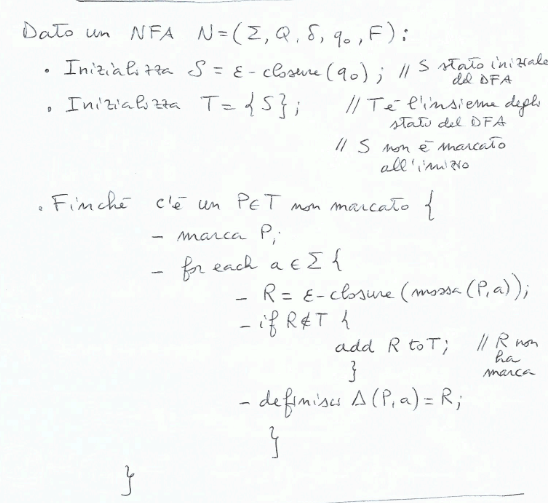 Dato un NFA N=(Σ, Q, δ, q₀, F):
• Inizializza S = ε-closure(q₀); // S stato iniziale
del DFA
• Inizializza T = {S}; // T è l'insieme degli
stati del DFA
// S non è marcato
all'inizio
• Finché c'è un P∈T non marcato {
- marca P;
- for each a ∈ Σ {
- R = ε-closure(mossa(P,a));
- if R∉T {
add R to T; // R non
ha
marca
}
- definisci Δ(P,a) = R;
}
}